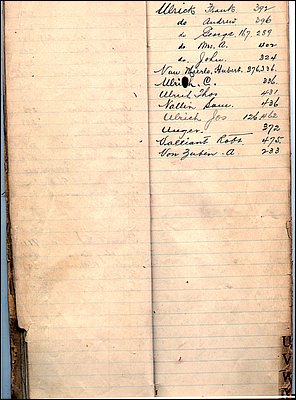 Ulrick Frank 392
do Andrew 296
do George 167, 289
do Mrs. A. 402
do. John. 324
Van Mierlo, Hubert. 376
Ulrich. C. 236.
Ulrich Thos 431
Nollin Sam. 436
Ulrich Jos 126, 462
Unger. 372
Valliant Robt. 475
Von Zuben. A. 233
U V W